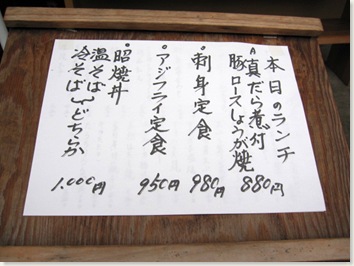 本日のランチ
A 真だら煮付
豚ロースしょうが焼
880円
・刺身定食
980円
・アジフライ定食
950円
・昭焼丼
温そば
冷そば どちらか
1.000円